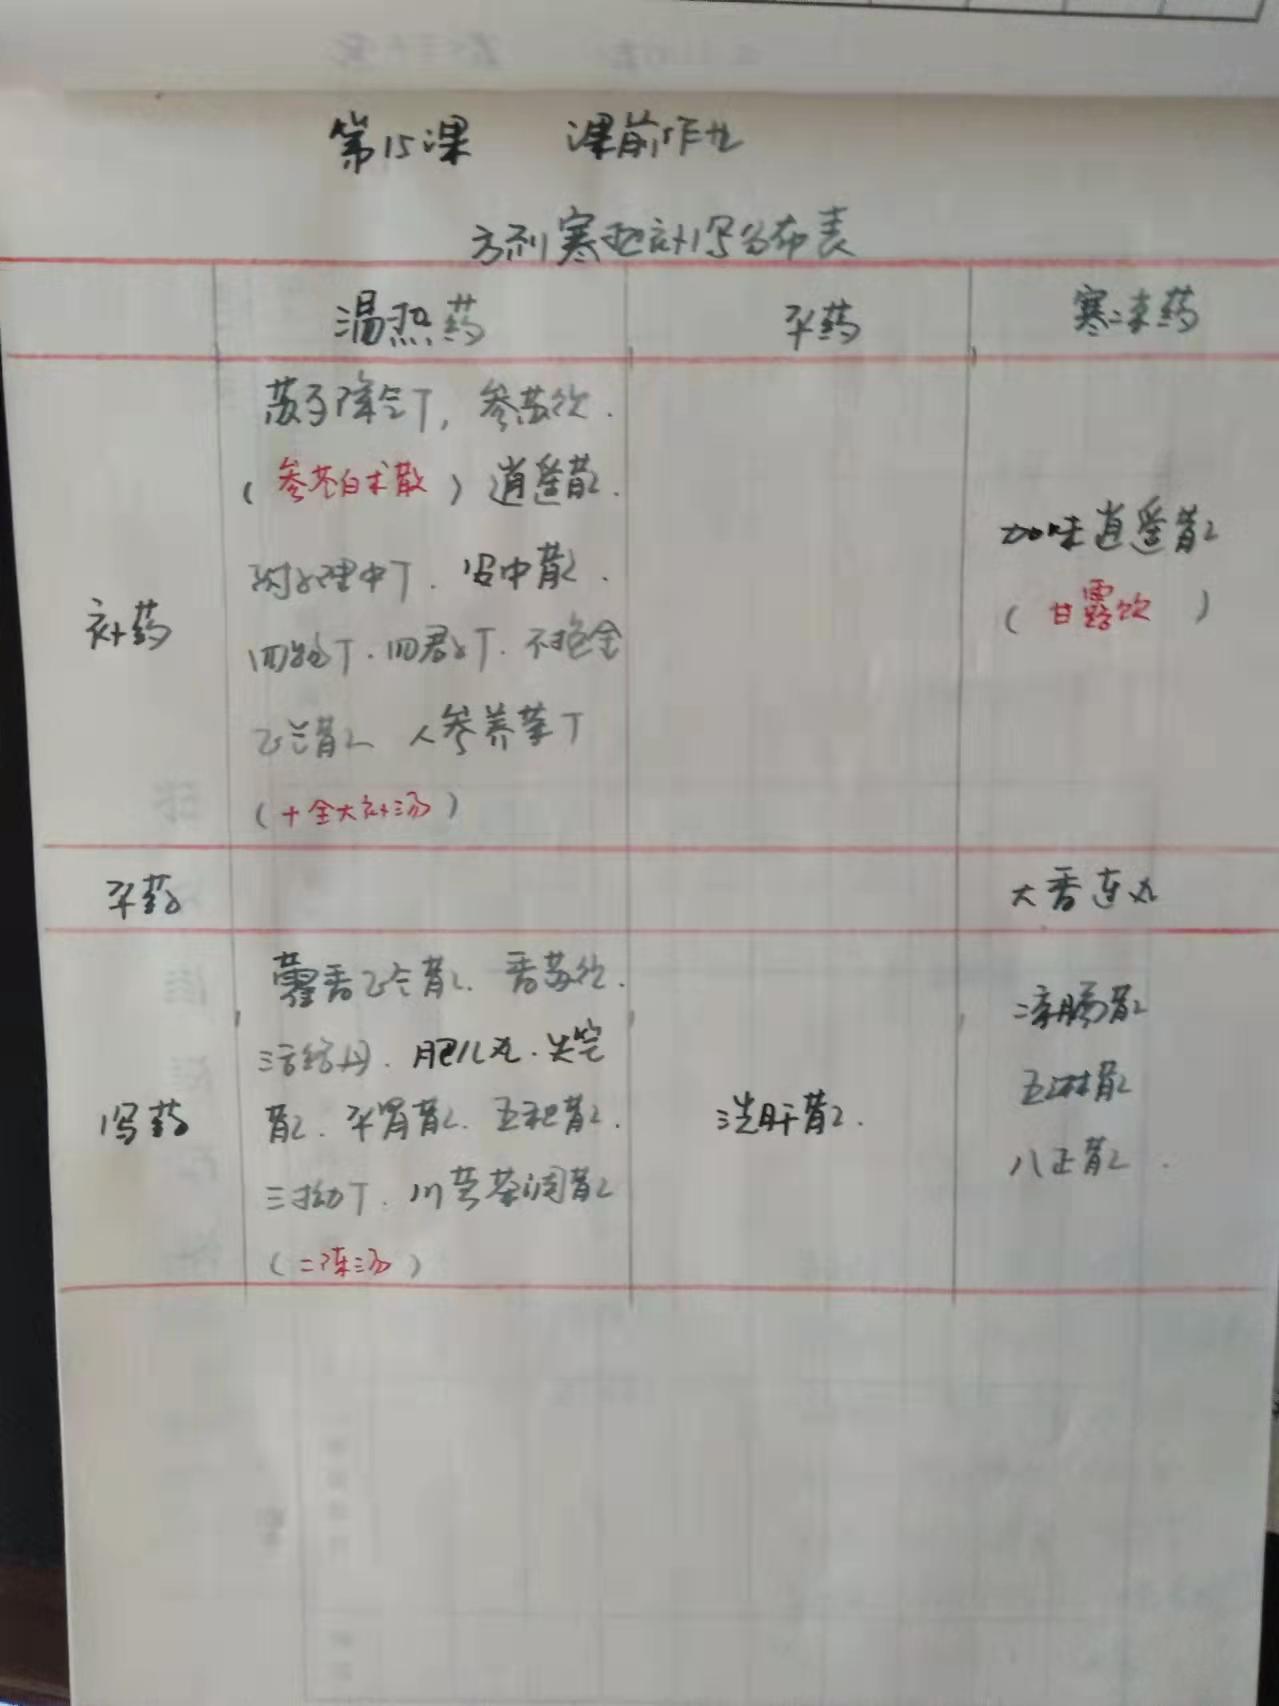 第15课 课前作业
方剂寒热补泻分布表
温热药 平药 寒凉药
补药
苏子降气丁,参苏饮.
(参苓白术散)逍遥散.
附子理中丁.安中散.
四物丁.四君子丁.不换金
正气散 人参养荣丁
(十全大补汤)
加味逍遥散
(甘露饮)
平药
大香连丸
泻药
藿香正气散.香苏饮.
活络丹.肥儿丸.失笑
散.平胃散.五积散.
三拗丁.川芎茶调散
(二陈汤)
洗肝散.
凉膈散
五淋散
八正散.